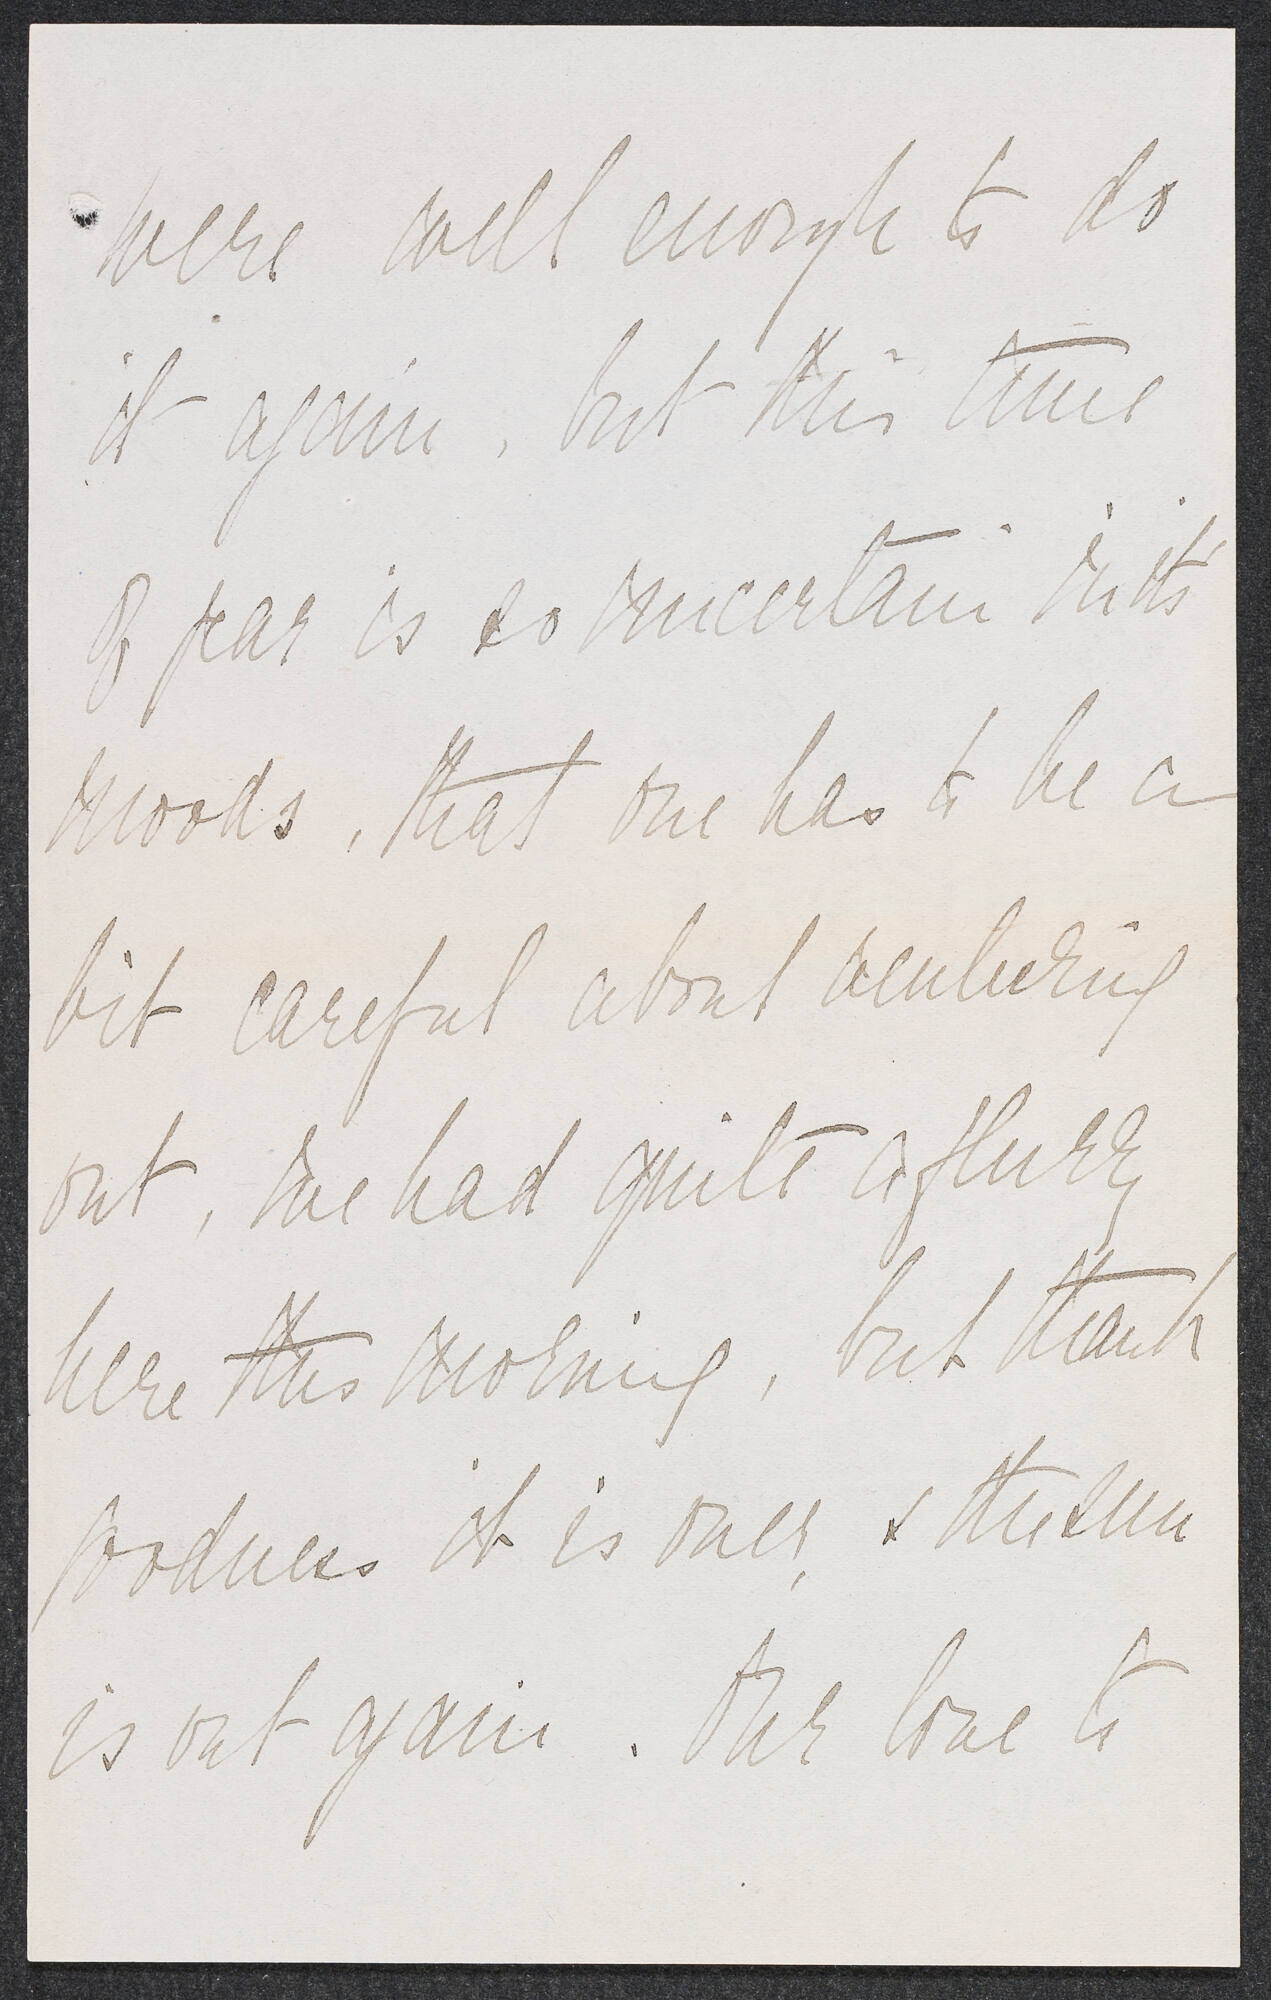 were well enough to do
it again, but this time
of year is so uncertain in its
moods, that one has to be a
bit careful about venturing
out, we had quite a flurry
here this morning, but thank
goodness it is over, & the sun
is out again. Our love to